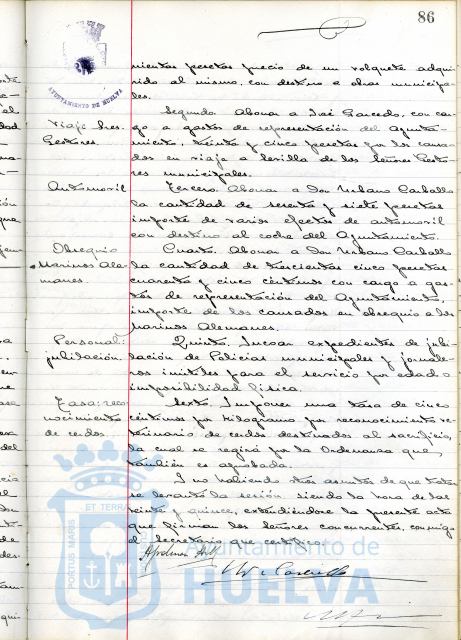 86
AYUNTAMIENTO DE HUELVA
mientas pesetas precio de un volquete adqui-
rido al mismo, con destino a obras municipa-
les.
Segundo. Abonar a José Saucedo, con car-
Viaje Sres. Gestores.
go a gastos de representación del Ayunta-
miento, treinta y cinco pesetas por los causa-
dos en viaje a Sevilla de los Señores Gesto-
res municipales.
Automóvil
Tercero. Abonar a Don Urbano Carballo
la cantidad de sesenta y siete pesetas
importe de varios efectos de automovil
con destino al coche del Ayuntamiento.
Obsequio Marinos Ale-
manes.
Cuarto. Abonar a Don Urbano Carballo
la cantidad de trescientas cinco pesetas
cuarenta y cinco céntimos con cargo a gas-
tos de representación del Ayuntamiento,
importe de los causados en obsequio a los
Marinos Alemanes.
Personal:
jubilación.
Quinto. Incoar expedientes de jubi-
lación de Policias municipales y jornale-
ros inutiles para el servicio por edad o
imposibilidad física.
Tasa: reco-
nocimiento
de cerdos.
Sexto. Imponer una tasa de cinco
céntimos por kilogramo por reconocimiento ve-
terinario de cerdos destinados al sacrificio,
la cual se regirá por la Ordenanza que
también es aprobada.
Y no habiendo otros asuntos de que tratar
se levantó la sesión siendo la hora de las
veinte y quince, extendiéndose la presente acta
que firman los Señores concurrentes, conmigo
el Secretario que certifico.
PORTUS MARIS ET TERRAE
Ayuntamiento de
HUELVA